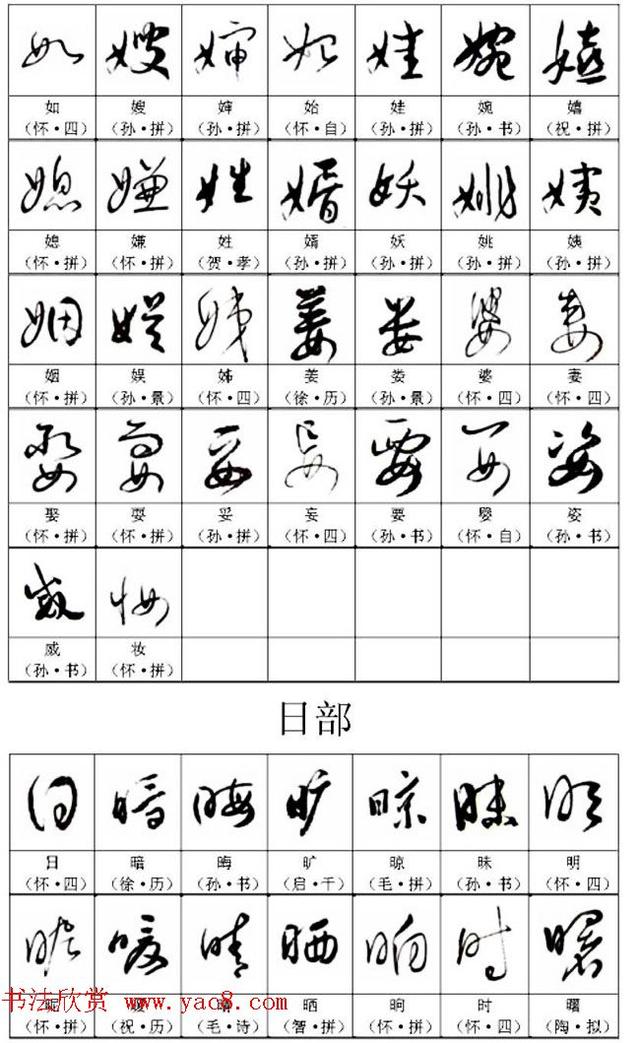 如 嫂 婶 始 娃 婉 嬉
（怀·四） （孙·拼） （孙·拼） （怀·自） （孙·拼） （孙·书） （祝·拼）
媳 嫌 姓 婿 妖 姚 姨
（怀·拼） （怀·拼） （贺·孝） （孙·拼） （孙·拼） （孙·拼） （孙·拼）
姻 娱 姊 姜 娄 婆 妻
（怀·拼） （孙·景） （怀·四） （徐·历） （孙·景） （怀·四） （怀·四）
娶 耍 妥 妄 要 婴 姿
（怀·拼） （怀·拼） （孙·拼） （怀·四） （孙·书） （怀·自） （孙·书）
威 妆
（孙·书） （怀·拼）
日部
日 暗 晦 旷 晾 昧 明
（怀·四） （徐·历） （孙·书） （启·千） （毛·拼） （孙·书） （怀·四）
昵 暖 晴 晒 晌 时 曙
书法欣赏 www.yac8.com
（怀·拼） （祝·历） （毛·诗） （智·拼） （怀·拼） （怀·四） （陶·拟）